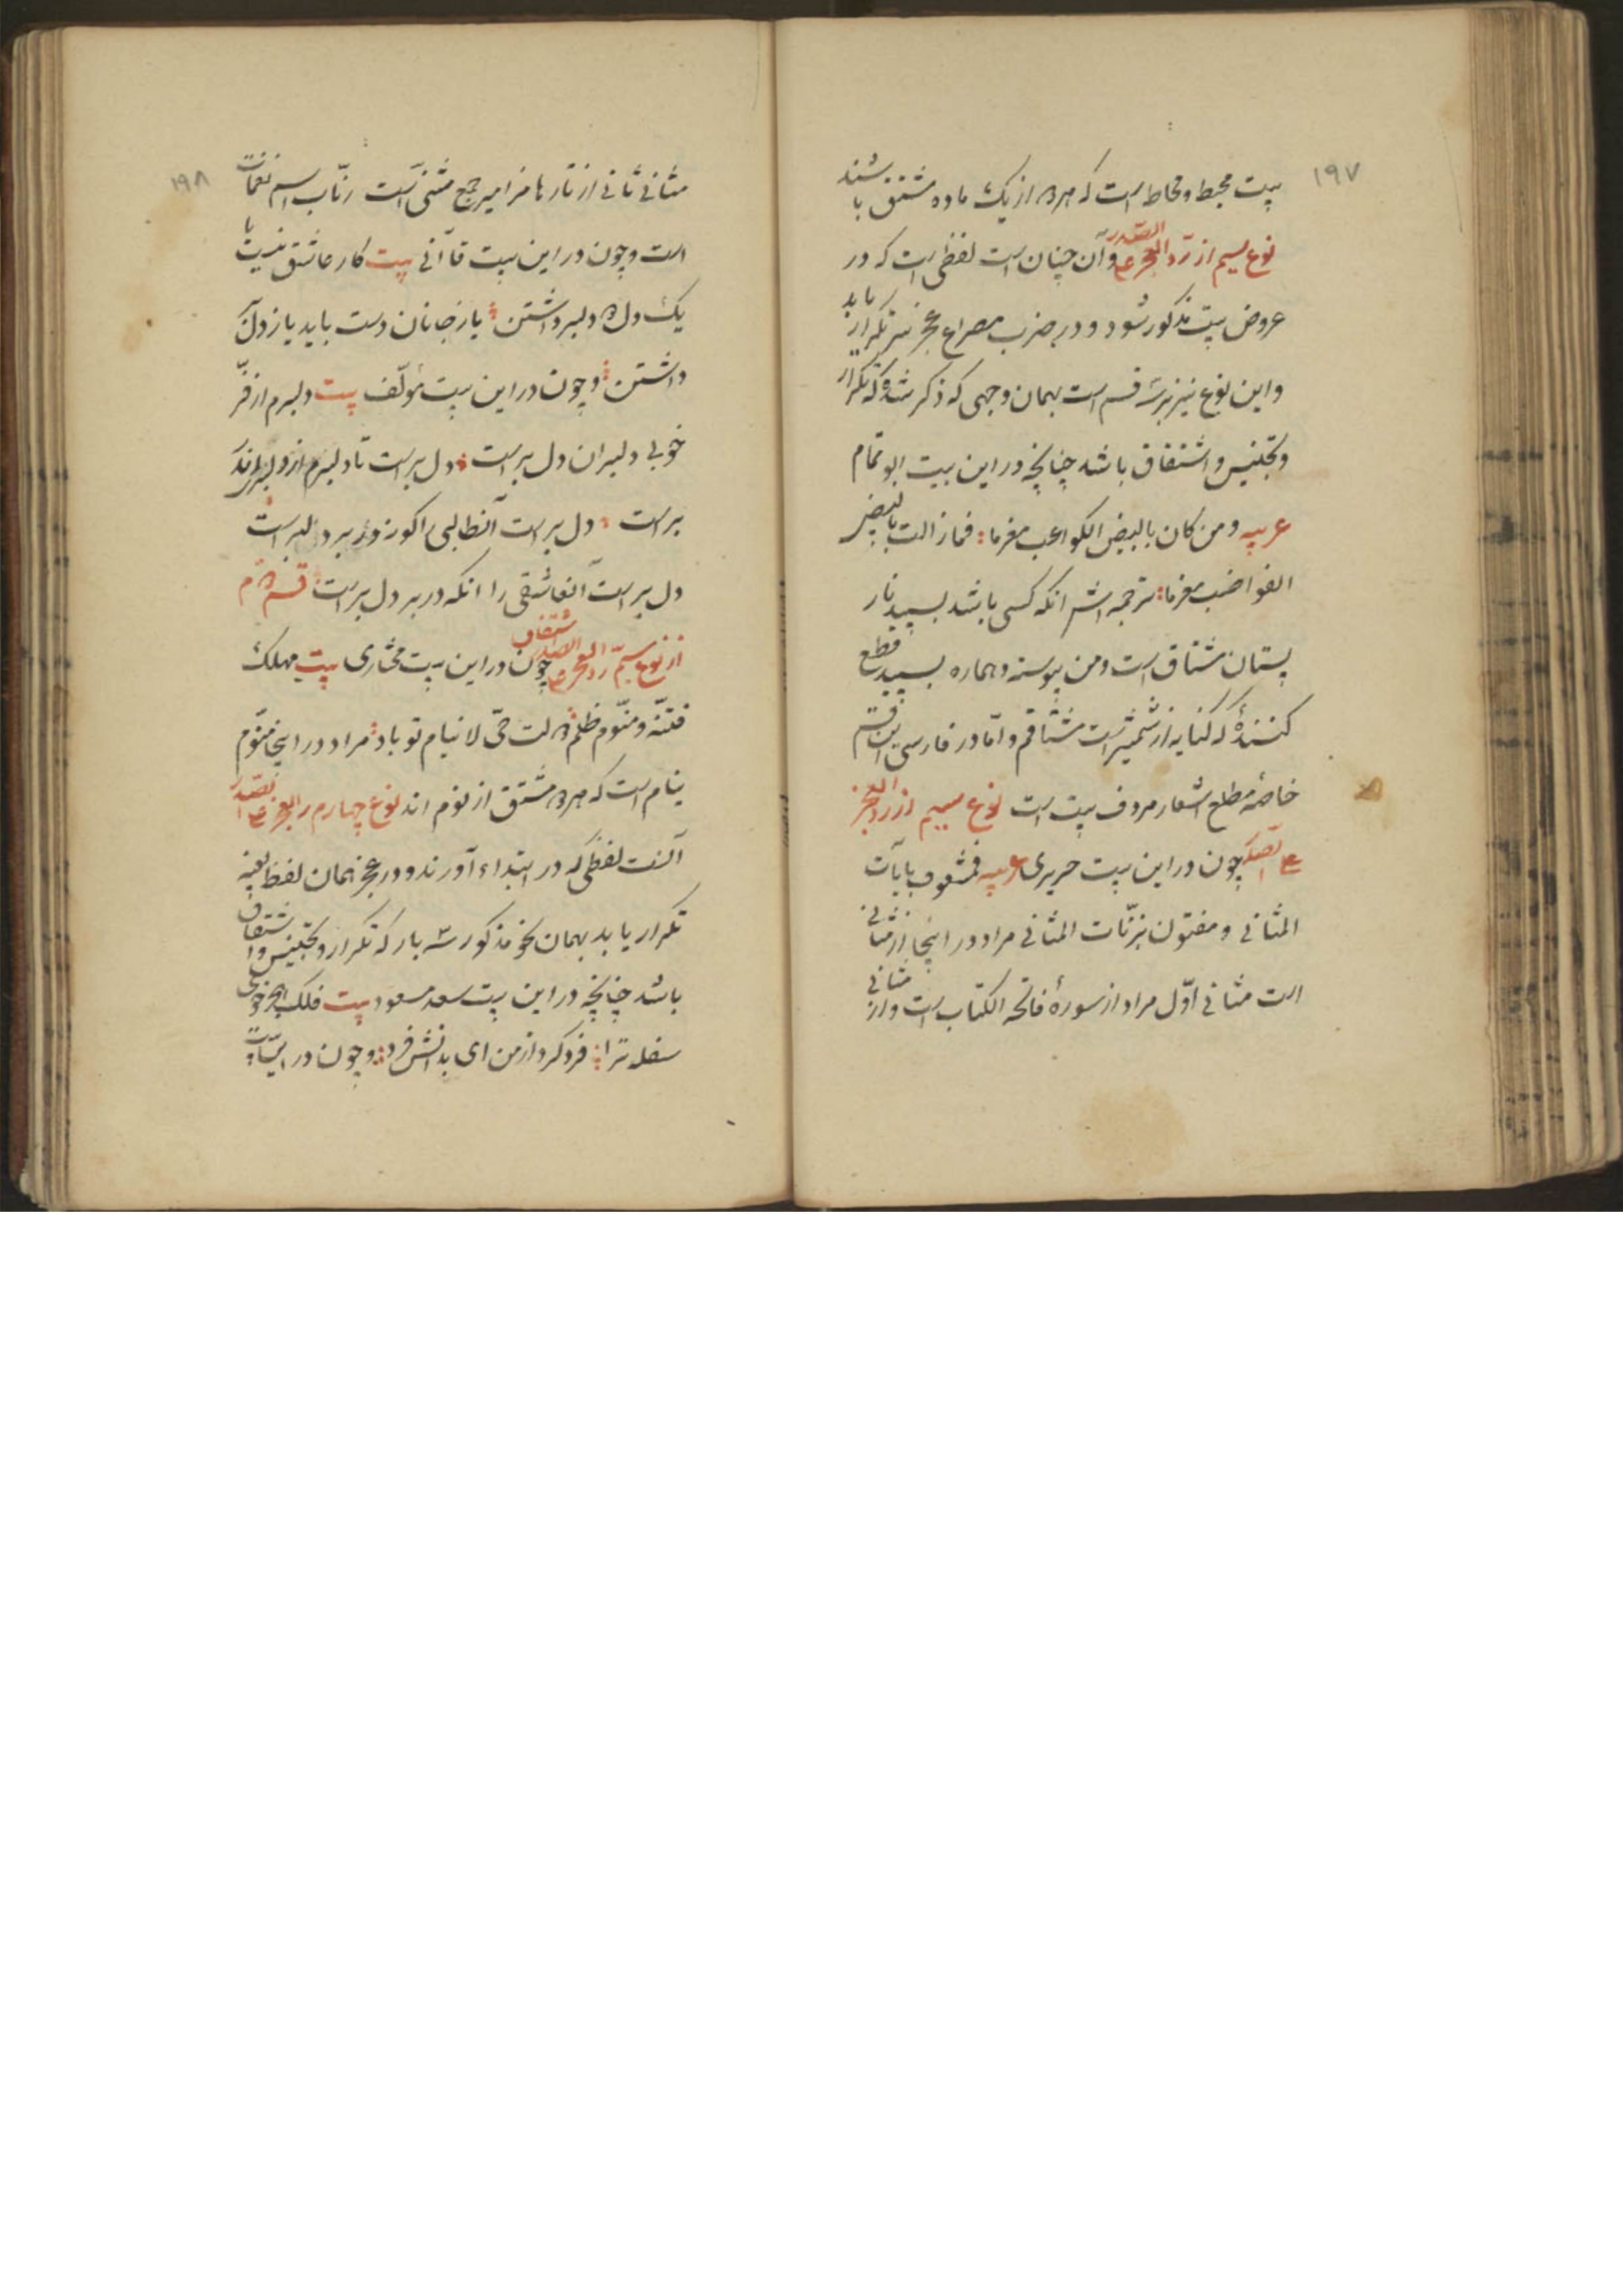 ۱۹۷
بیت محیط و محاط است که هردو از یک ماده مشتق باشند
نوع سیم از ردّ العجز علی الصّدر وآن چنان است لفظی است که در
عروض بیت مذکور شود و در ضرب مصراع عجز نیز تکرار یابد
واین نوع نیز بر سه قسم است بهمان وجهی که ذکر شد که تکرار
وتجنیس و اشتقاق باشد چنانچه در این بیت ابو تمام
عربیه ومن کان بالبیض الکواعب مغرما فمازالت بالبیض
القواضب مغرما ترجمه اش انکه کسی باشد بسپید نار
پستان مشتاق است ومن پیوسته و هماره بسپید قطع
کننده که کنایه از شمشیر است مشتاقم و امّا در فارسی این قسم
خاصّه مطلع اشعار مردف بیت است نوع سیم از رد العجز
علی الصّدر چون در این بیت حریری عربیه فمشغوف بایات
المثانی ومفتون برنّات المثانی مراد در اینجا از مثانی
است مثانی اوّل مراد از سورهٔ فاتحه الکتاب است واز مثانی
۱۹۸
مثانی ثانی از تارها مزامیر جمع مثنی است رنّاب اسم نغمات
است وچون در این بیت قاآنی بیت کار عاشق نیست با
یک دل دو دلبر داشتن یا ز جانان دست باید یا ز دل
داشتن وچون در این بیت مؤلّف بیت دلبرم از فرّ
خوبی دلبران دل بر است دل بر است تا دلبرم از دلبران
بر است دل بر است آنطالبی را کو زور بر دلبر است
دل بر است آنعاشقی را انکه در بر دل بر است قسم دوم
از نوع سیّم ردّ العجز علی الصدر اشتقاق چون در این بیت مختاری بیت مهلک
فتنه و منوّم ظلم دولت حیّ لا نیام تو باد مراد در اینجا منوّم
ینام است که هردو مشتق از نوم اند نوع چهارم رد العجز علی الصّدر
آنست لفظی که در ابتداء آورند و در عجز همان لفظ بعینه
تکرار یابد بهمان نحو مذکور سه بار که تکرار و تجنیس و اشتقاق
باشد چنانچه در این بیت سعد مسعود بیت فلک
سفله ترا فرد کرد از من ای بدانش فرد وچون در این بیت